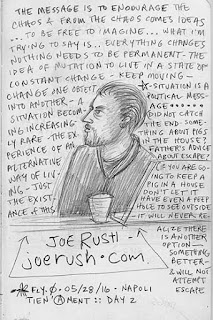 THE MESSAGE IS TO ENCOURAGE THE
CHAOS & FROM THE CHAOS COMES IDEAS
... TO BE FREE TO IMAGINE... WHAT I'M
TRYING TO SAY IS... EVERYTHING CHANGES
NOTHING NEEDS TO BE PERMANENT - THE
IDEA OF MUTATION TO LIVE IN A STATE OF
CONSTANT CHANGE - KEEP MOVING -
CHANGE ONE OBJECT
INTO ANOTHER - A
SITUATION BECOM-
ING INCREASING-
LY RARE - THE EX-
PERIENCE OF AN
ALTERNATIVE
WAY OF LIV-
ING - JUST
THE EXIST-
ANCE OF THIS
SITUATION IS A
POLITICAL MESS-
AGE
DIDN'T CATCH
THE END - SOME-
THING ABOUT PIGS
IN THE HOUSE?
FATHER'S ADVICE
ABOUT ESCAPE?
(IF YOU ARE GO-
ING TO KEEP A
PIG IN A HOUSE
DON'T LET IT
HAVE EVEN A PEEP
HOLE TO SEE OUTSIDE
IT WILL NEVER RE-
ALIZE THERE IS
ANOTHER
OPTION -
SOMETHING
BETTER -
& WILL NOT
ATTEMPT
ESCAPE
JOE RUSH
joerush.com.
FLY.O. 05/28/16 - NAPOLI
TIEN'AMENT :: DAY 2